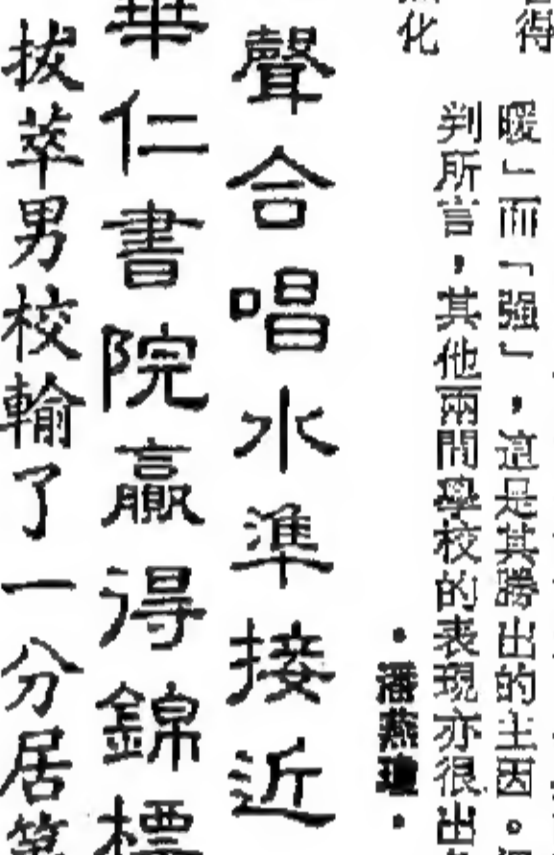 得
化
暖」而「强」,這是其勝出的主因。
判所言,其他兩間學校的表現亦很出
•潘燕瓊•
聲合唱水準接近
華仁書院贏得錦標
拔萃男校輸了一分居第